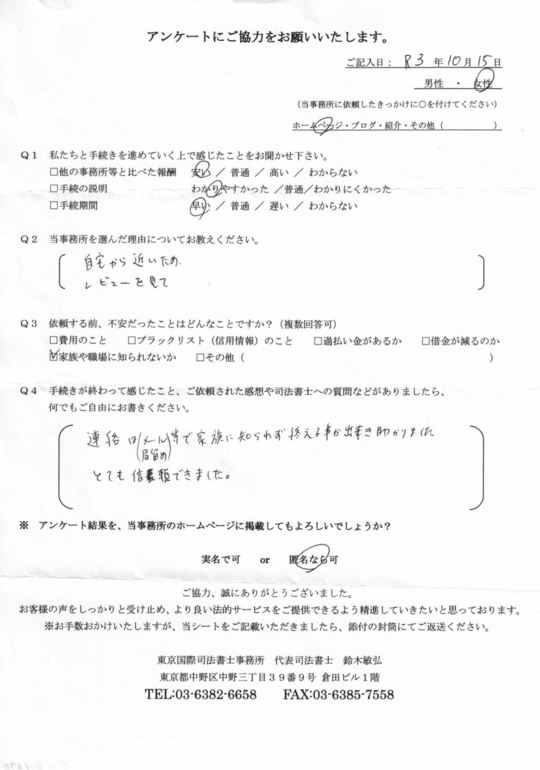 アンケートにご協力をお願いいたします。
ご記入日： R3 年 10 月 15 日
男性 ・ 女性
（当事務所に依頼したきっかけに○を付けてください）
ホームページ・ブログ・紹介・その他（　　　　）
Ｑ１ 私たちと手続きを進めていく上で感じたことをお聞かせ下さい。
□他の事務所等と比べた報酬 安い ／ 普通 ／ 高い ／ わからない
□手続の説明 わかりやすかった ／普通／わかりにくかった
□手続期間 早い ／ 普通 ／ 遅い ／ わからない
Ｑ２ 当事務所を選んだ理由についてお教えください。
自宅から近いため.
レビューを見て
Ｑ３ 依頼する前、不安だったことはどんなことですか？（複数回答可）
□費用のこと □ブラックリスト（信用情報）のこと □過払い金があるか □借金が減るのか
☑家族や職場に知られないか □その他（　　　　）
Ｑ４ 手続きが終わって感じたこと、ご依頼された感想や司法書士への質問などがありましたら、
何でもご自由にお書きください。
連絡はメール等で家族に知られず終える事が出来き助かりました
(局留め)
とても信頼できました。
※ アンケート結果を、当事務所のホームページに掲載してもよろしいでしょうか？
実名で可 or 匿名なら可
ご協力、誠にありがとうございました。
お客様の声をしっかりと受け止め、より良い法的サービスをご提供できるよう精進していきたいと思っております。
※お手数おかけいたしますが、当シートをご記載いただきましたら、添付の封筒にてご返送ください。
東京国際司法書士事務所 代表司法書士 鈴木敏弘
東京都中野区中野三丁目３９番９号 倉田ビル１階
TEL:03-6382-6658 FAX:03-6385-7558